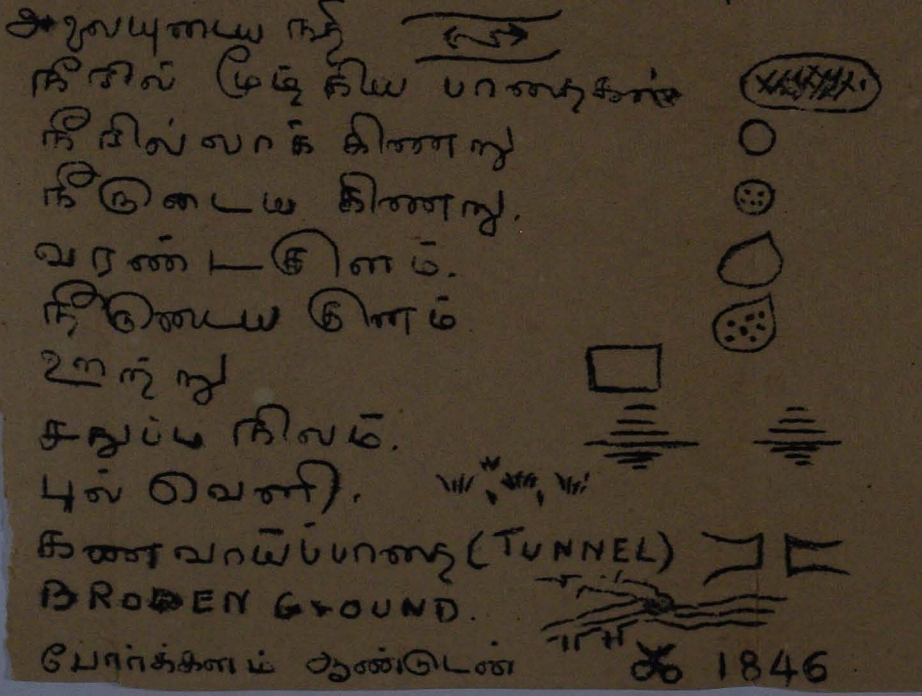 அலையுடைய நதி
நீரில் மூழ்கிய பாதைகள்
நீரில்லாக் கிணறு
நீருடைய கிணறு.
வரண்ட குளம்.
நீருடைய குளம்
ஊற்று
சதுப்பு நிலம்.
புல் வெளி.
கணவாய்ப்பாதை (TUNNEL)
BROKEN GROUND.
போர்க்களம் ஆண்டுடன் 1846